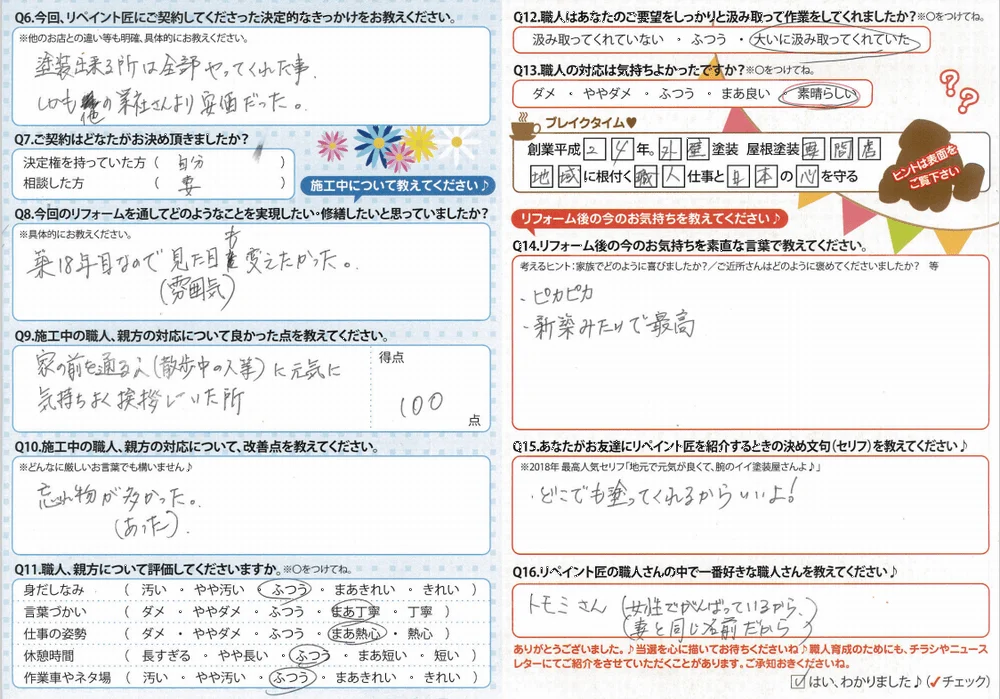 Q6.今回、リペイント匠にご契約してくださった決定的なきっかけをお教えください。
※他のお店との違い等も明確、具体的にお教えください。
塗装出来る所は全部やってくれた事。
しかも他の業社さんより安価だった。
Q7.ご契約はどなたがお決め頂きましたか?
決定権を持っていた方 ( 自分 )
相談した方 ( 妻 )
施工中について教えてください♪
Q8.今回のリフォームを通してどのようなことを実現したい・修繕したいと思っていましたか?
※具体的にお教えください。
築18年目なので見た目を変えたかった。
(雰囲気)
Q9.施工中の職人、親方の対応について良かった点を教えてください。
家の前を通る人(散歩中の人等)に元気に
気持ちよく挨拶していた所
得点
100
点
Q10.施工中の職人、親方の対応について、改善点を教えてください。
※どんなに厳しいお言葉でも構いません♪
忘れ物が多かった。
(あった)。
Q11.職人、親方について評価してくださいますか。※○をつけてね。
身だしなみ ( 汚い ・ やや汚い ・ ふつう ・ まあきれい ・ きれい )
言葉づかい ( ダメ ・ ややダメ ・ ふつう ・ まあ丁寧 ・ 丁寧 )
仕事の姿勢 ( ダメ ・ ややダメ ・ ふつう ・ まあ熱心 ・ 熱心 )
休憩時間 ( 長すぎる ・ やや長い ・ ふつう ・ まあ短い ・ 短い )
作業車やネタ場 ( 汚い ・ やや汚い ・ ふつう ・ まあきれい ・ きれい )
Q12.職人はあなたのご要望をしっかりと汲み取って作業をしてくれましたか?※○をつけてね。
汲み取ってくれていない ・ ふつう ・ 大いに汲み取ってくれていた
Q13.職人の対応は気持ちよかったですか?※○をつけてね。
ダメ ・ ややダメ ・ ふつう ・ まあ良い ・ 素晴らしい
ブレイクタイム♥
創業平成24年。外壁塗装 屋根塗装専門店
地域に根付く職人仕事と日本の心を守る
ヒントは表面を
ご覧下さい
リフォーム後の今のお気持ちを教えてください♪
Q14.リフォーム後の今のお気持ちを素直な言葉で教えてください。
考えるヒント:家族でどのように喜びましたか?/ご近所さんはどのように褒めてくださいましたか? 等
・ピカピカ
・新築みたいで最高
Q15.あなたがお友達にリペイント匠を紹介するときの決め文句(セリフ)を教えてください♪
※2018年 最高人気セリフ「地元で元気が良くて、腕のイイ塗装屋さんよ♪」
・どこでも塗ってくれるからいいよ!
Q16.リペイント匠の職人さんの中で一番好きな職人さんを教えてください♪
トモミさん (女性でがんばっているから。)
(妻と同じ名前だから)
ありがとうございました。♪当選を心に描いてお待ちくださいね♪職人育成のためにも、チラシやニュース
レターにてご紹介をさせていただくことがあります。ご承知おきくださいね。
☑はい、わかりました♪(✓チェック)